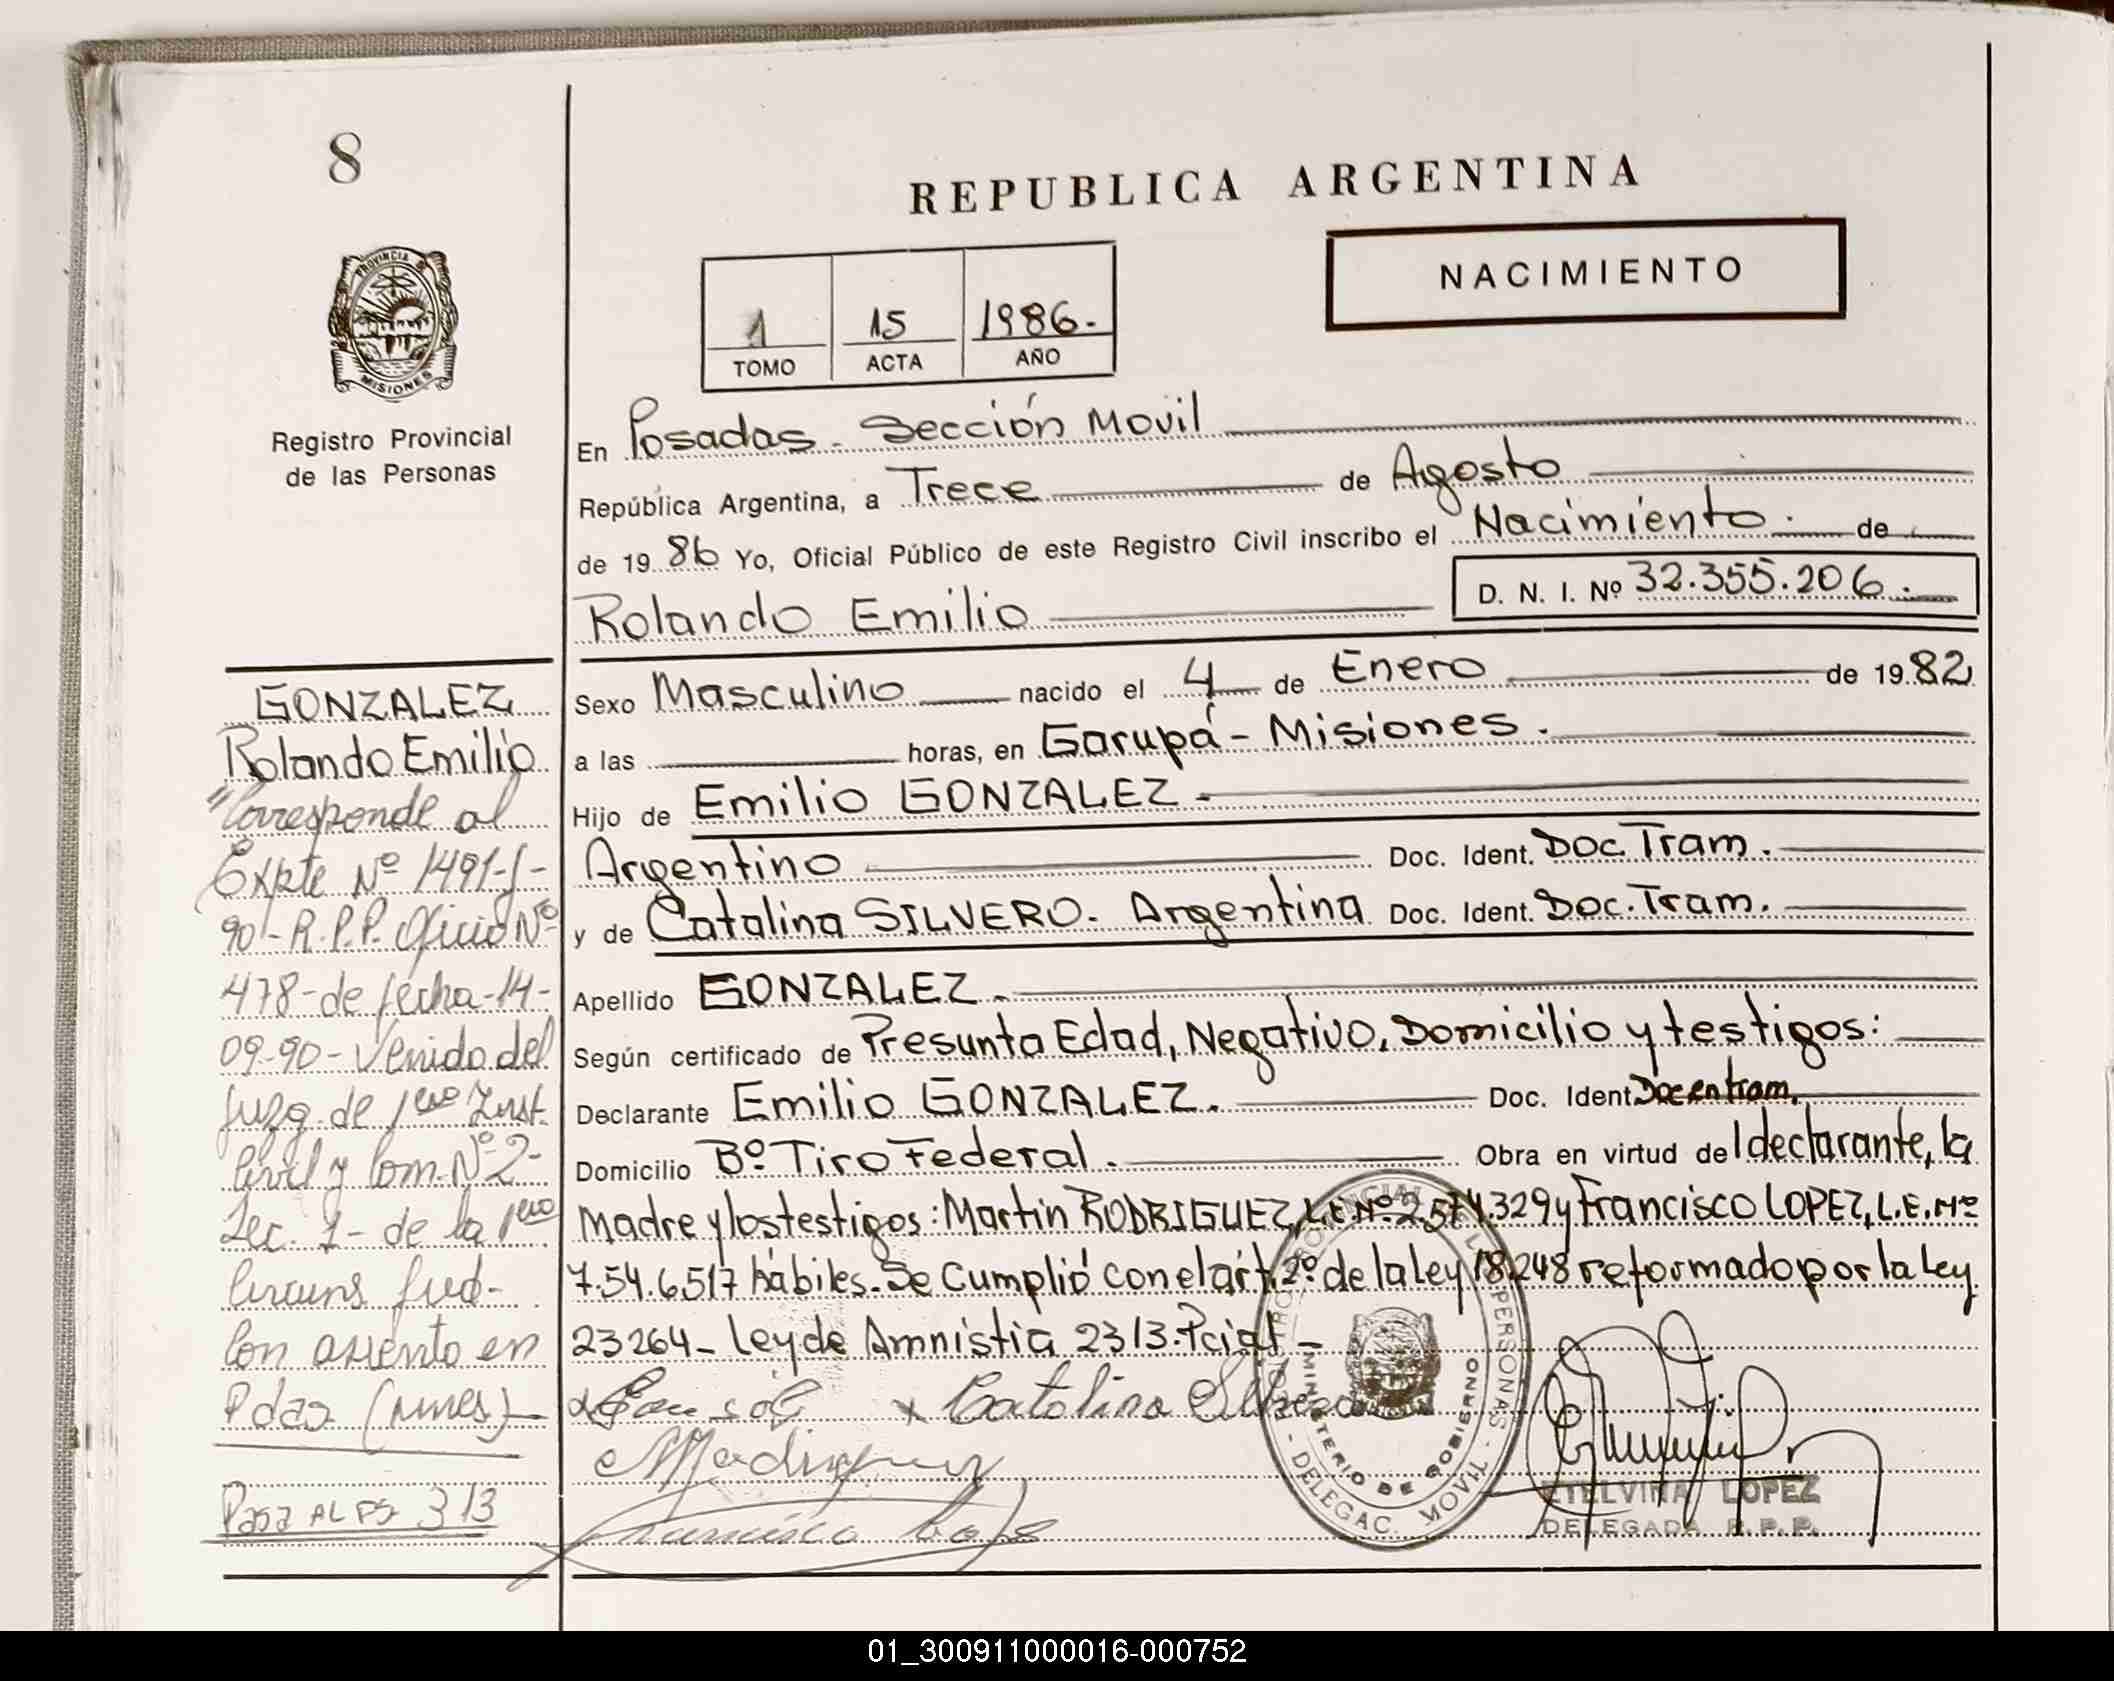 8
REPUBLICA ARGENTINA
NACIMIENTO
1 15 1986.-
TOMO ACTA AÑO
PROVINCIA DE
MISIONES
Registro Provincial
de las Personas
En Posadas - Sección Movil
República Argentina, a Trece de Agosto
de 19 86 Yo, Oficial Público de este Registro Civil inscribo el Nacimiento. de
Rolando Emilio D. N. I. Nº 32.355.206.-
Sexo Masculino nacido el 4 de Enero de 19 82
a las horas, en Garupá - Misiones.
Hijo de Emilio GONZALEZ -
Argentino Doc. Ident. Doc. Tram.
y de Catalina SILVERO. Argentina Doc. Ident. Doc. Tram.
Apellido GONZALEZ.
Según certificado de Presunta Edad, Negativo, Domicilio y testigos:
Declarante Emilio GONZALEZ. Doc. Ident. Doc en tram.
Domicilio Bº. Tiro Federal. Obra en virtud del declarante, la
Madre y los testigos: Martin RODRIGUEZ, L.E. Nº 2.574.329 y Francisco LOPEZ, L.E. Nº
7.54.6.517 hábiles. Se Cumplió con el art. 2º. de la ley 18248 reformado por la Ley
23264 - Ley de Amnistia 2313. Pcial -
x Catalina Silvero
Francisco
REGISTRO PROVINCIAL DE LAS PERSONAS - DELEGAC. MOVIL -
MINISTERIO DE GOBIERNO
ETELVINA LOPEZ
DELEGADA R.P.P.
GONZALEZ
Rolando Emilio
"Corresponde al
Expte Nº 1491-
90 - R.P.P. Oficio Nº
478 - de fecha - 14 -
09-90 - Venido del
Juzg. de 1era Inst.
Civil y Com. Nº 2 -
Sec. 1 - de la 1era
Circuns Jud -
Con asiento en
Pdas (mnes)
Pasa AL Fº 313
01_300911000016-000752